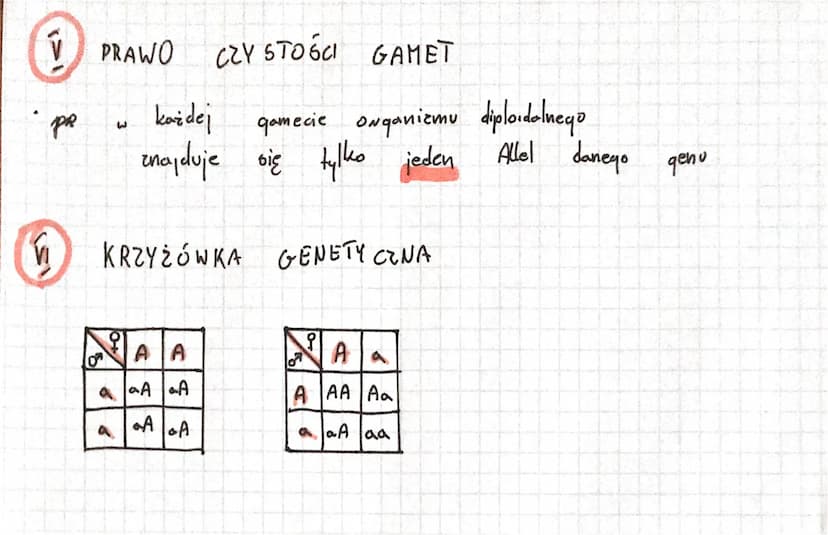 V PRAWO CZYSTOŚCI GAMET
· PR w każdej gamecie organizmu diploidalnego
znajduje się tylko jeden Allel danego genu
VI KRZYŻÓWKA GENETYCZNA
♀ ♂ A A
a aA aA
a aA aA
♀ ♂ A a
A AA Aa
a aA aa